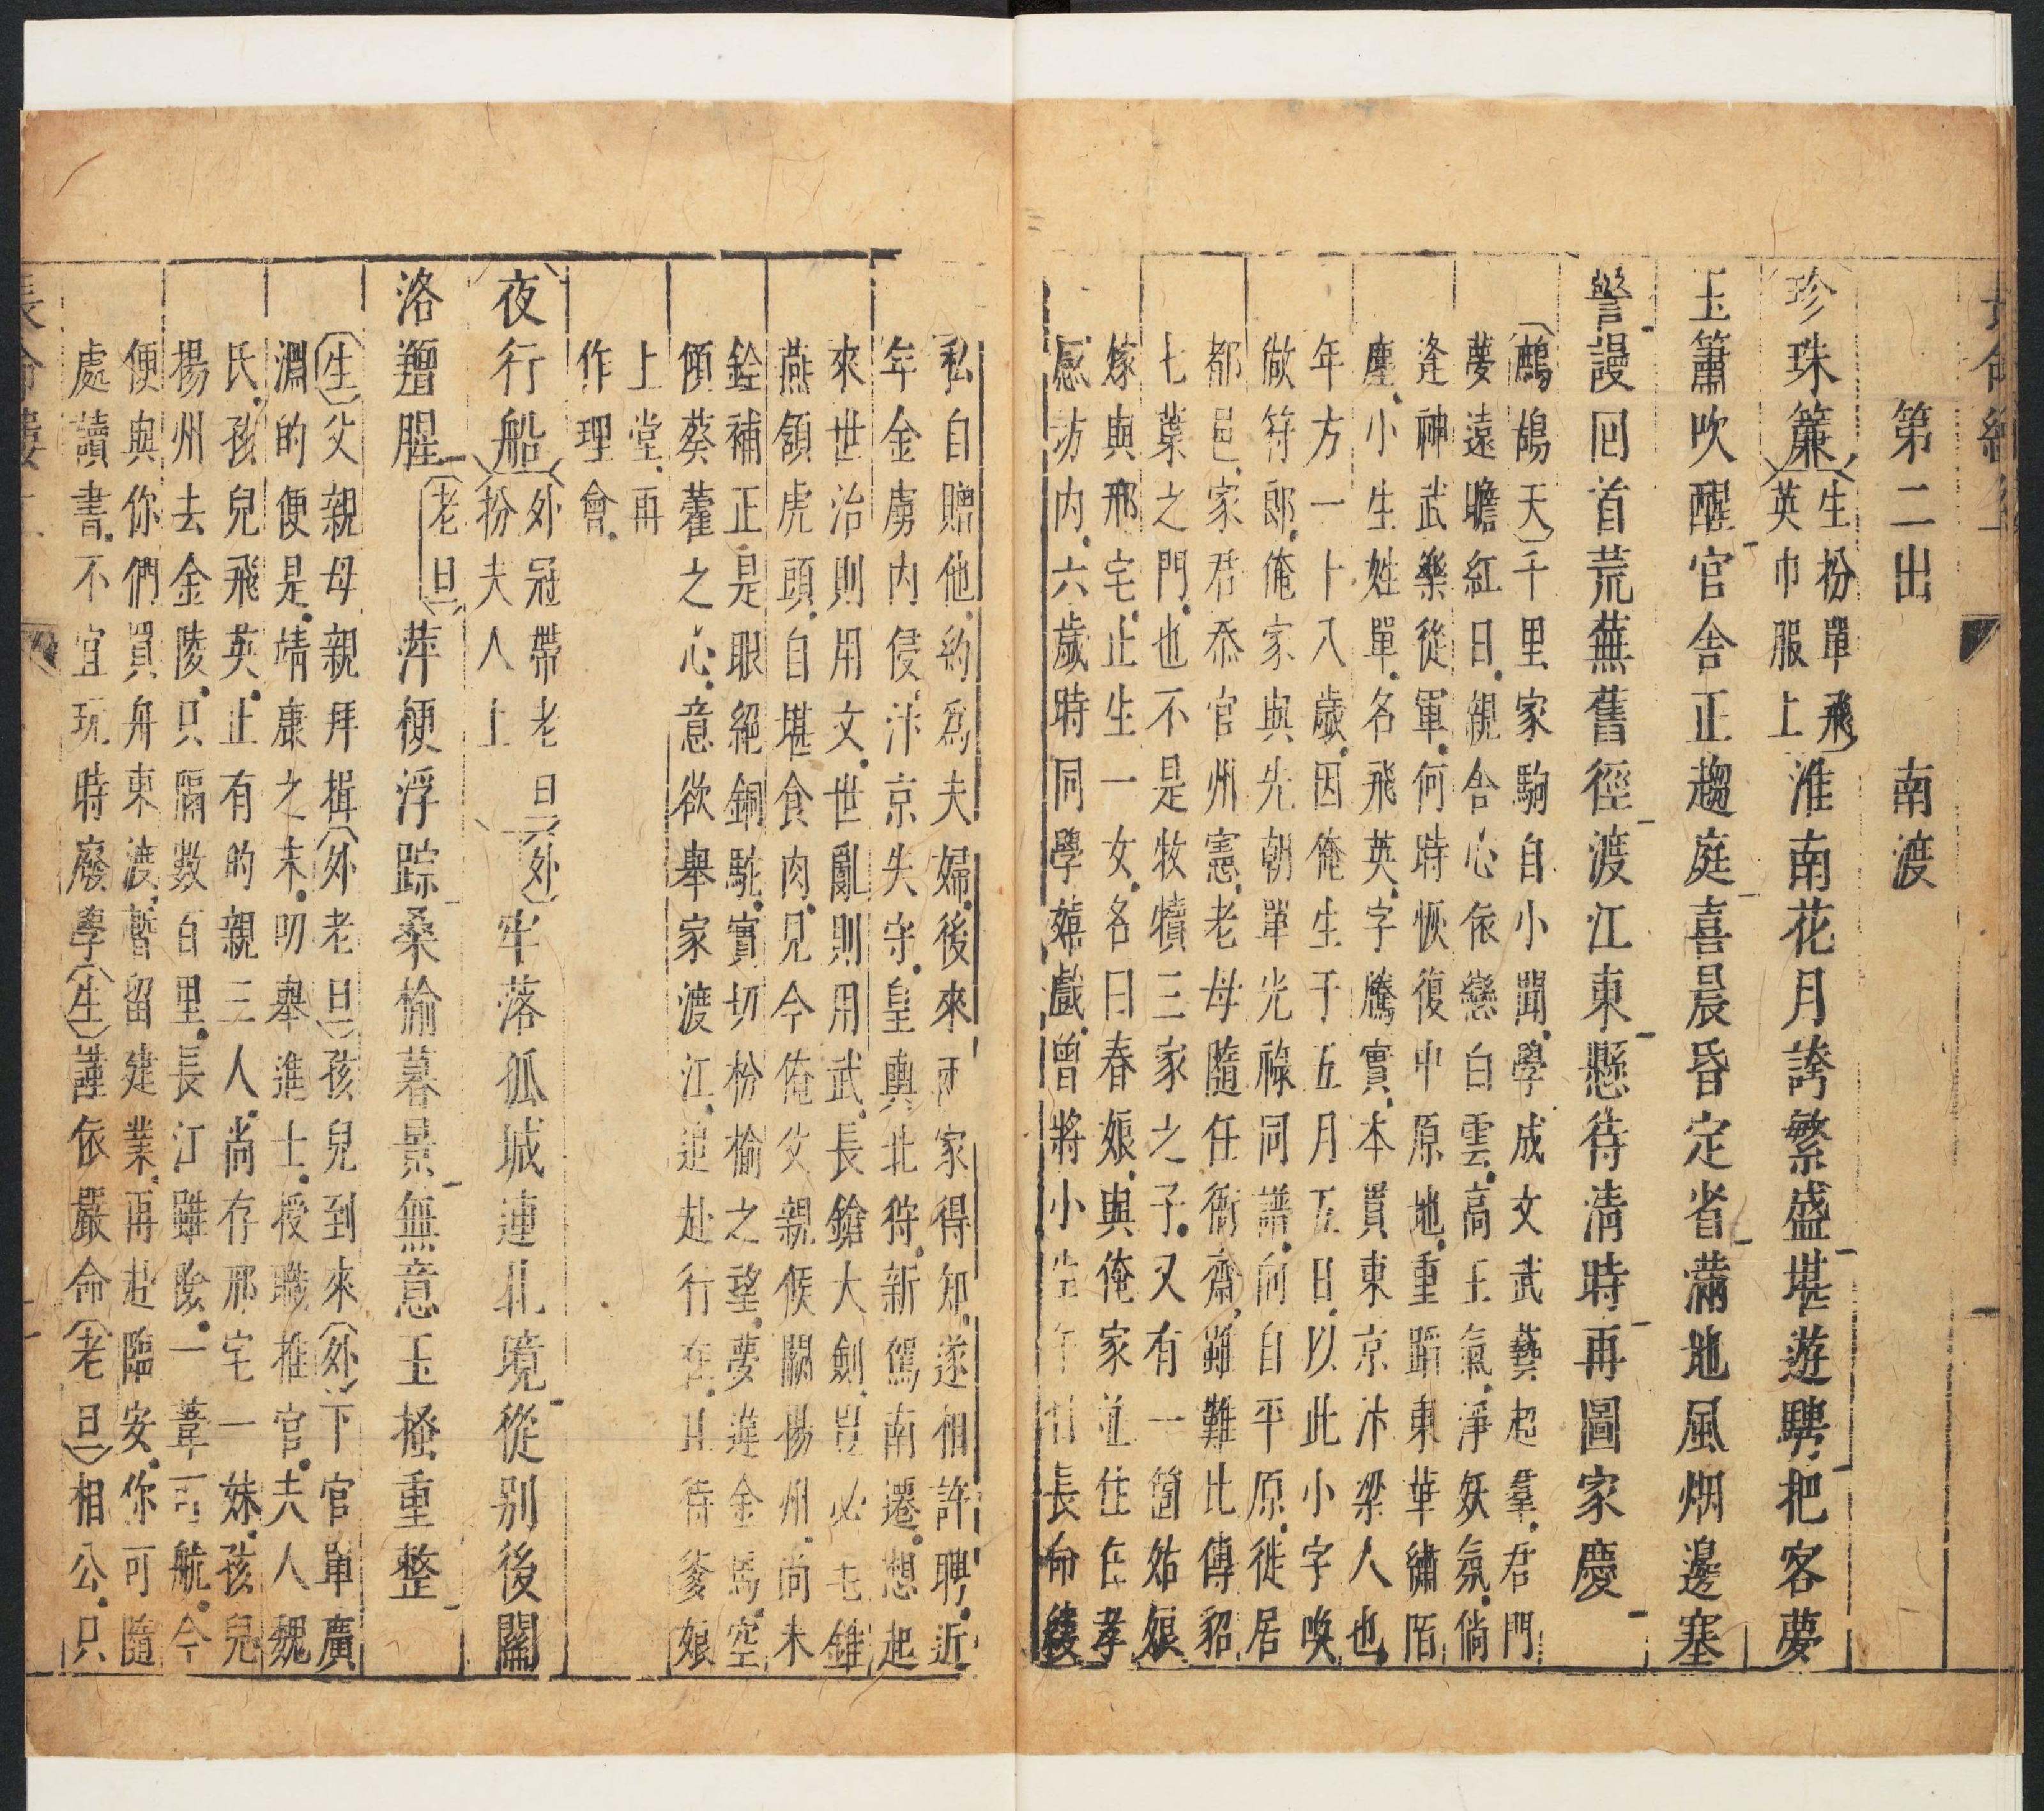 第二出　南渡
珍珠簾生扮單飛英巾服上淮南花月誇繁盛堪遊騁把客夢
玉簫吹醒官舍正趨庭喜晨昏定省滿地風烟邊塞
警謾回首荒蕪舊徑渡江東懸待清時再圖家慶
鷓鴣天千里家駒自小聞學成文武藝超羣君門
夢遠瞻紅日親舍心依戀白雲高王氣淨妖氛倘
逢神武樂從軍何時恢復中原地重蹈東華繡陌
塵小生姓單名飛英字騰實本貫東京汴梁人也
年方一十八歲因俺生于五月五日以此小字喚
做符郎俺家與先朝單光祿同譜向自平原徙居
都邑家君忝官州憲老母隨任衙齋雖難比傅貂
七葉之門也不是牧犢三家之子又有一箇姑娘
嫁與邢宅止生一女名曰春娘與俺家並住在孝
感坊內六歲時同學嬉戲曾將小生午日長命縷
私自贈他約爲夫婦後來兩家得知遂相許聘近
年金虜內侵汴京失守皇輿北狩新駕南遷想起
來世治則用文世亂則用武長鎗大劍豈必毛錐
燕頷虎頭自堪食肉見今俺父親候闕揚州尚未
銓補正是眼絕銅駝實切枌榆之望夢遶金馬空
傾葵藿之心意欲舉家渡江追赴行在且待爹娘
上堂再
作理會
夜行船外冠帶老旦扮夫人上外牢落孤城連北境從别後關
洛羶腥老旦萍梗浮踪桑榆暮景無意玉搔重整
生父親母親拜揖外老旦孩兒到來外下官單廣
淵的便是靖康之末叨舉進士授職推官夫人魏
氏孩兒飛英止有的親三人尚存邢宅一妹孩兒
揚州去金陵只隔數百里長江雖險一葦可航今
便與你們買舟東渡暫留建業再赴臨安你可隨
處讀書不宜玩時廢學生謹依嚴命老旦相公只